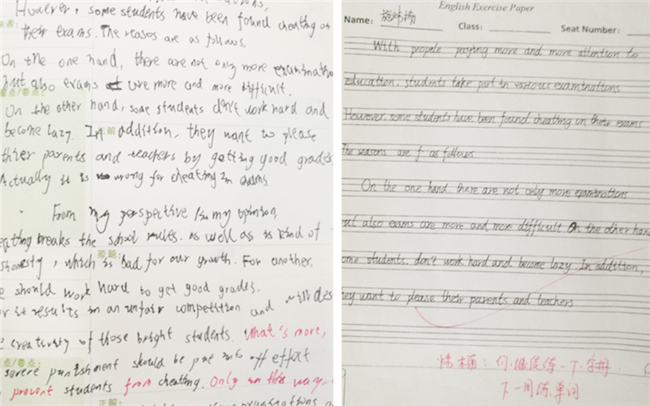 However, some students have been found cheating on
their exams. The reasons are as follows.
On the one hand, there are not only more examinations
but also exams are more and more difficult.
On the other hand, some students don't work hard and
become lazy. In addition, they want to please
thier parents and teachers by getting good grades
Actually it is wrong for cheating in exams.
From my perspective / In my opinion,
cheating breaks the school rules. as well as is kind of
, which is bad for our growth. For another,
we should work hard to get good grades.
or it results in an unfair competition and
e creativity of those bright students. What's more,
severe punishment should be put into effect
prevent students from cheating. Only in this way,
English Exercise Paper
Name:
Class:
Seat Number:
With people paying more and more attention to
education, students take part in various examinations
However, some students have been found cheating on their exams
The reasons are f as follows.
On the one hand there are not only more examinations
but also exams are more and more difficult On the other hand
some students. don't work hard and become lazy. In addition,
they want to please their parents and teachers
下一周练单词